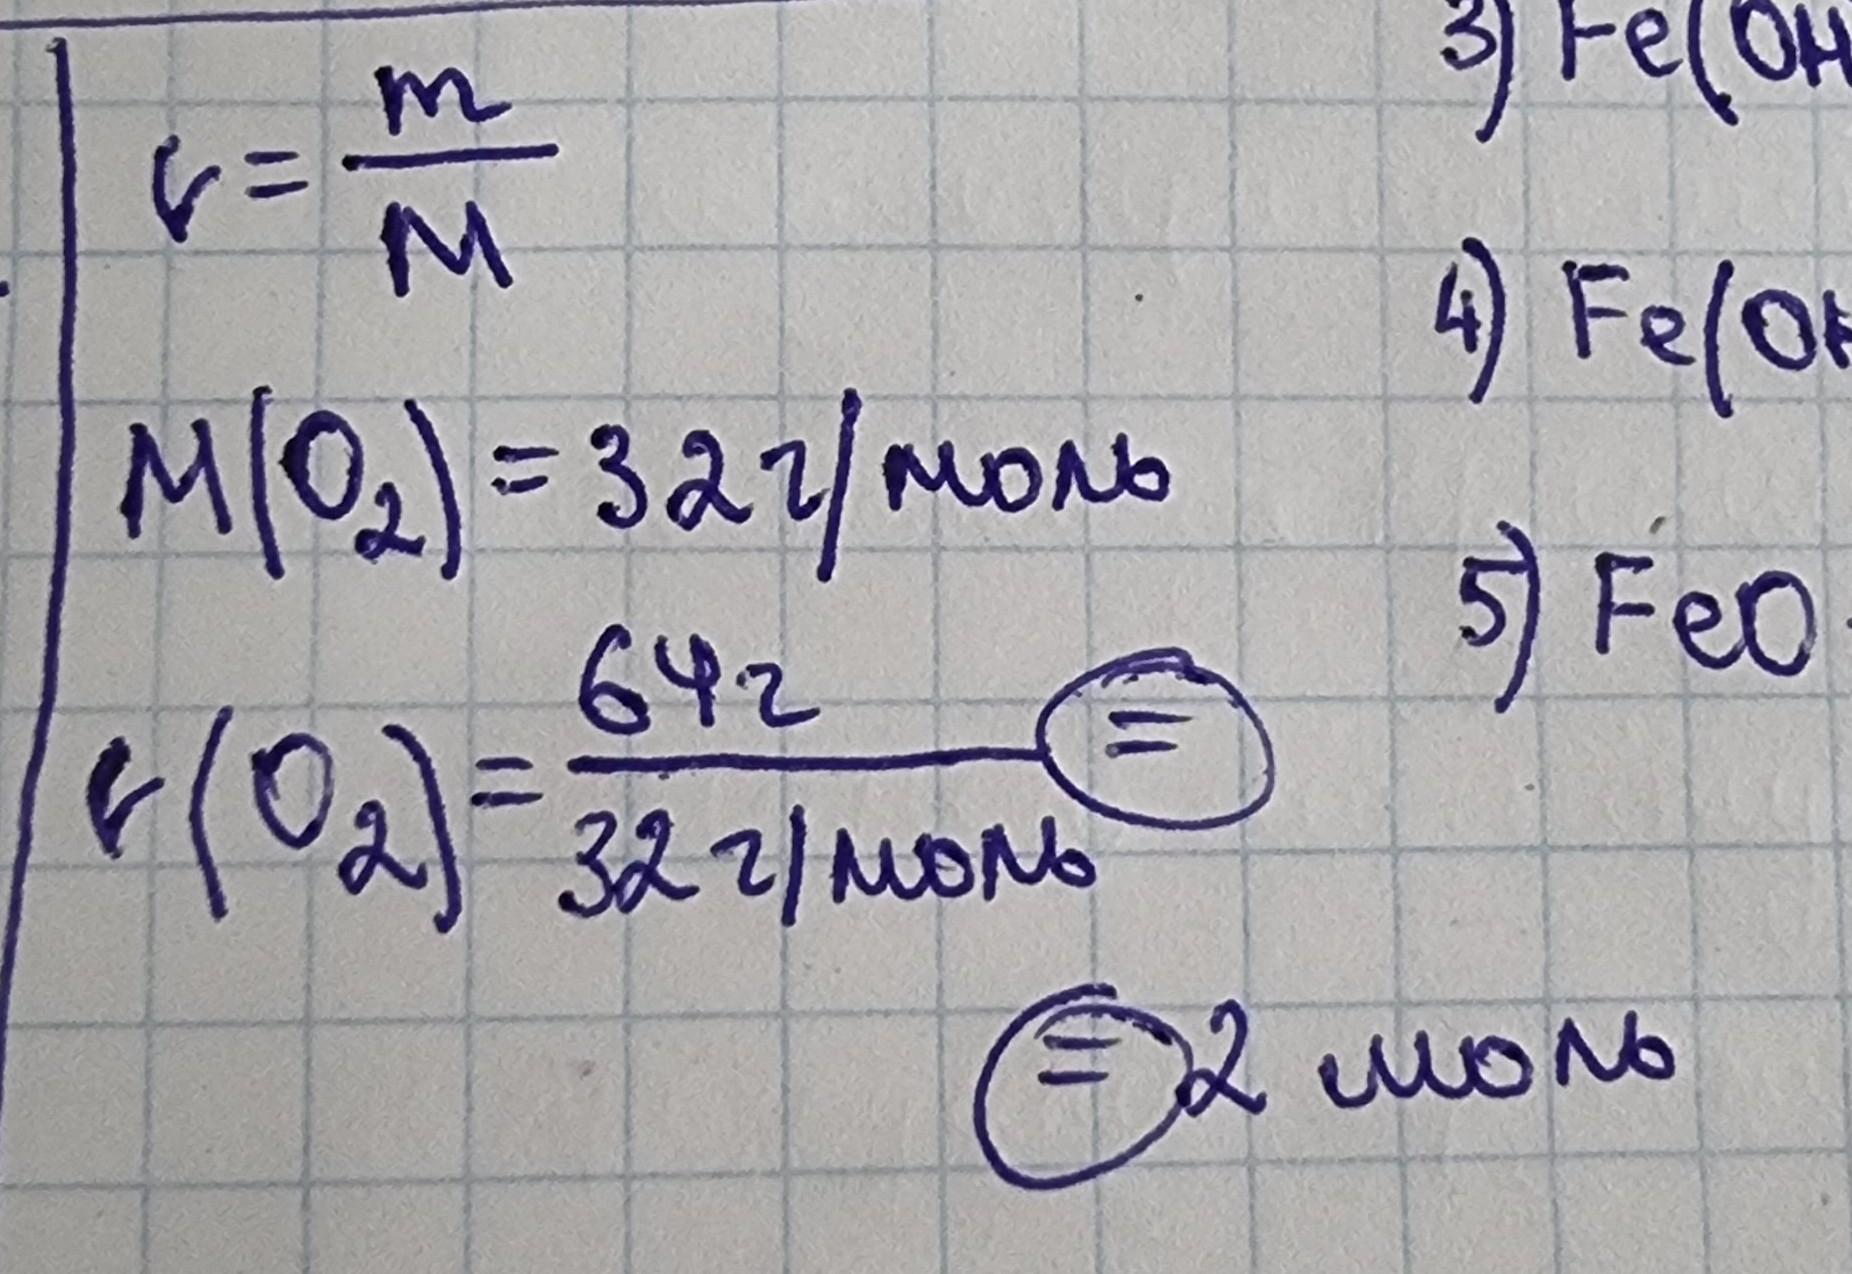 ν = m/M
M(O₂) = 32 г/моль
ν(O₂) = 64г/32 г/моль =
= 2 моль
3) Fe(OH
4) Fe(OH
5) FeO